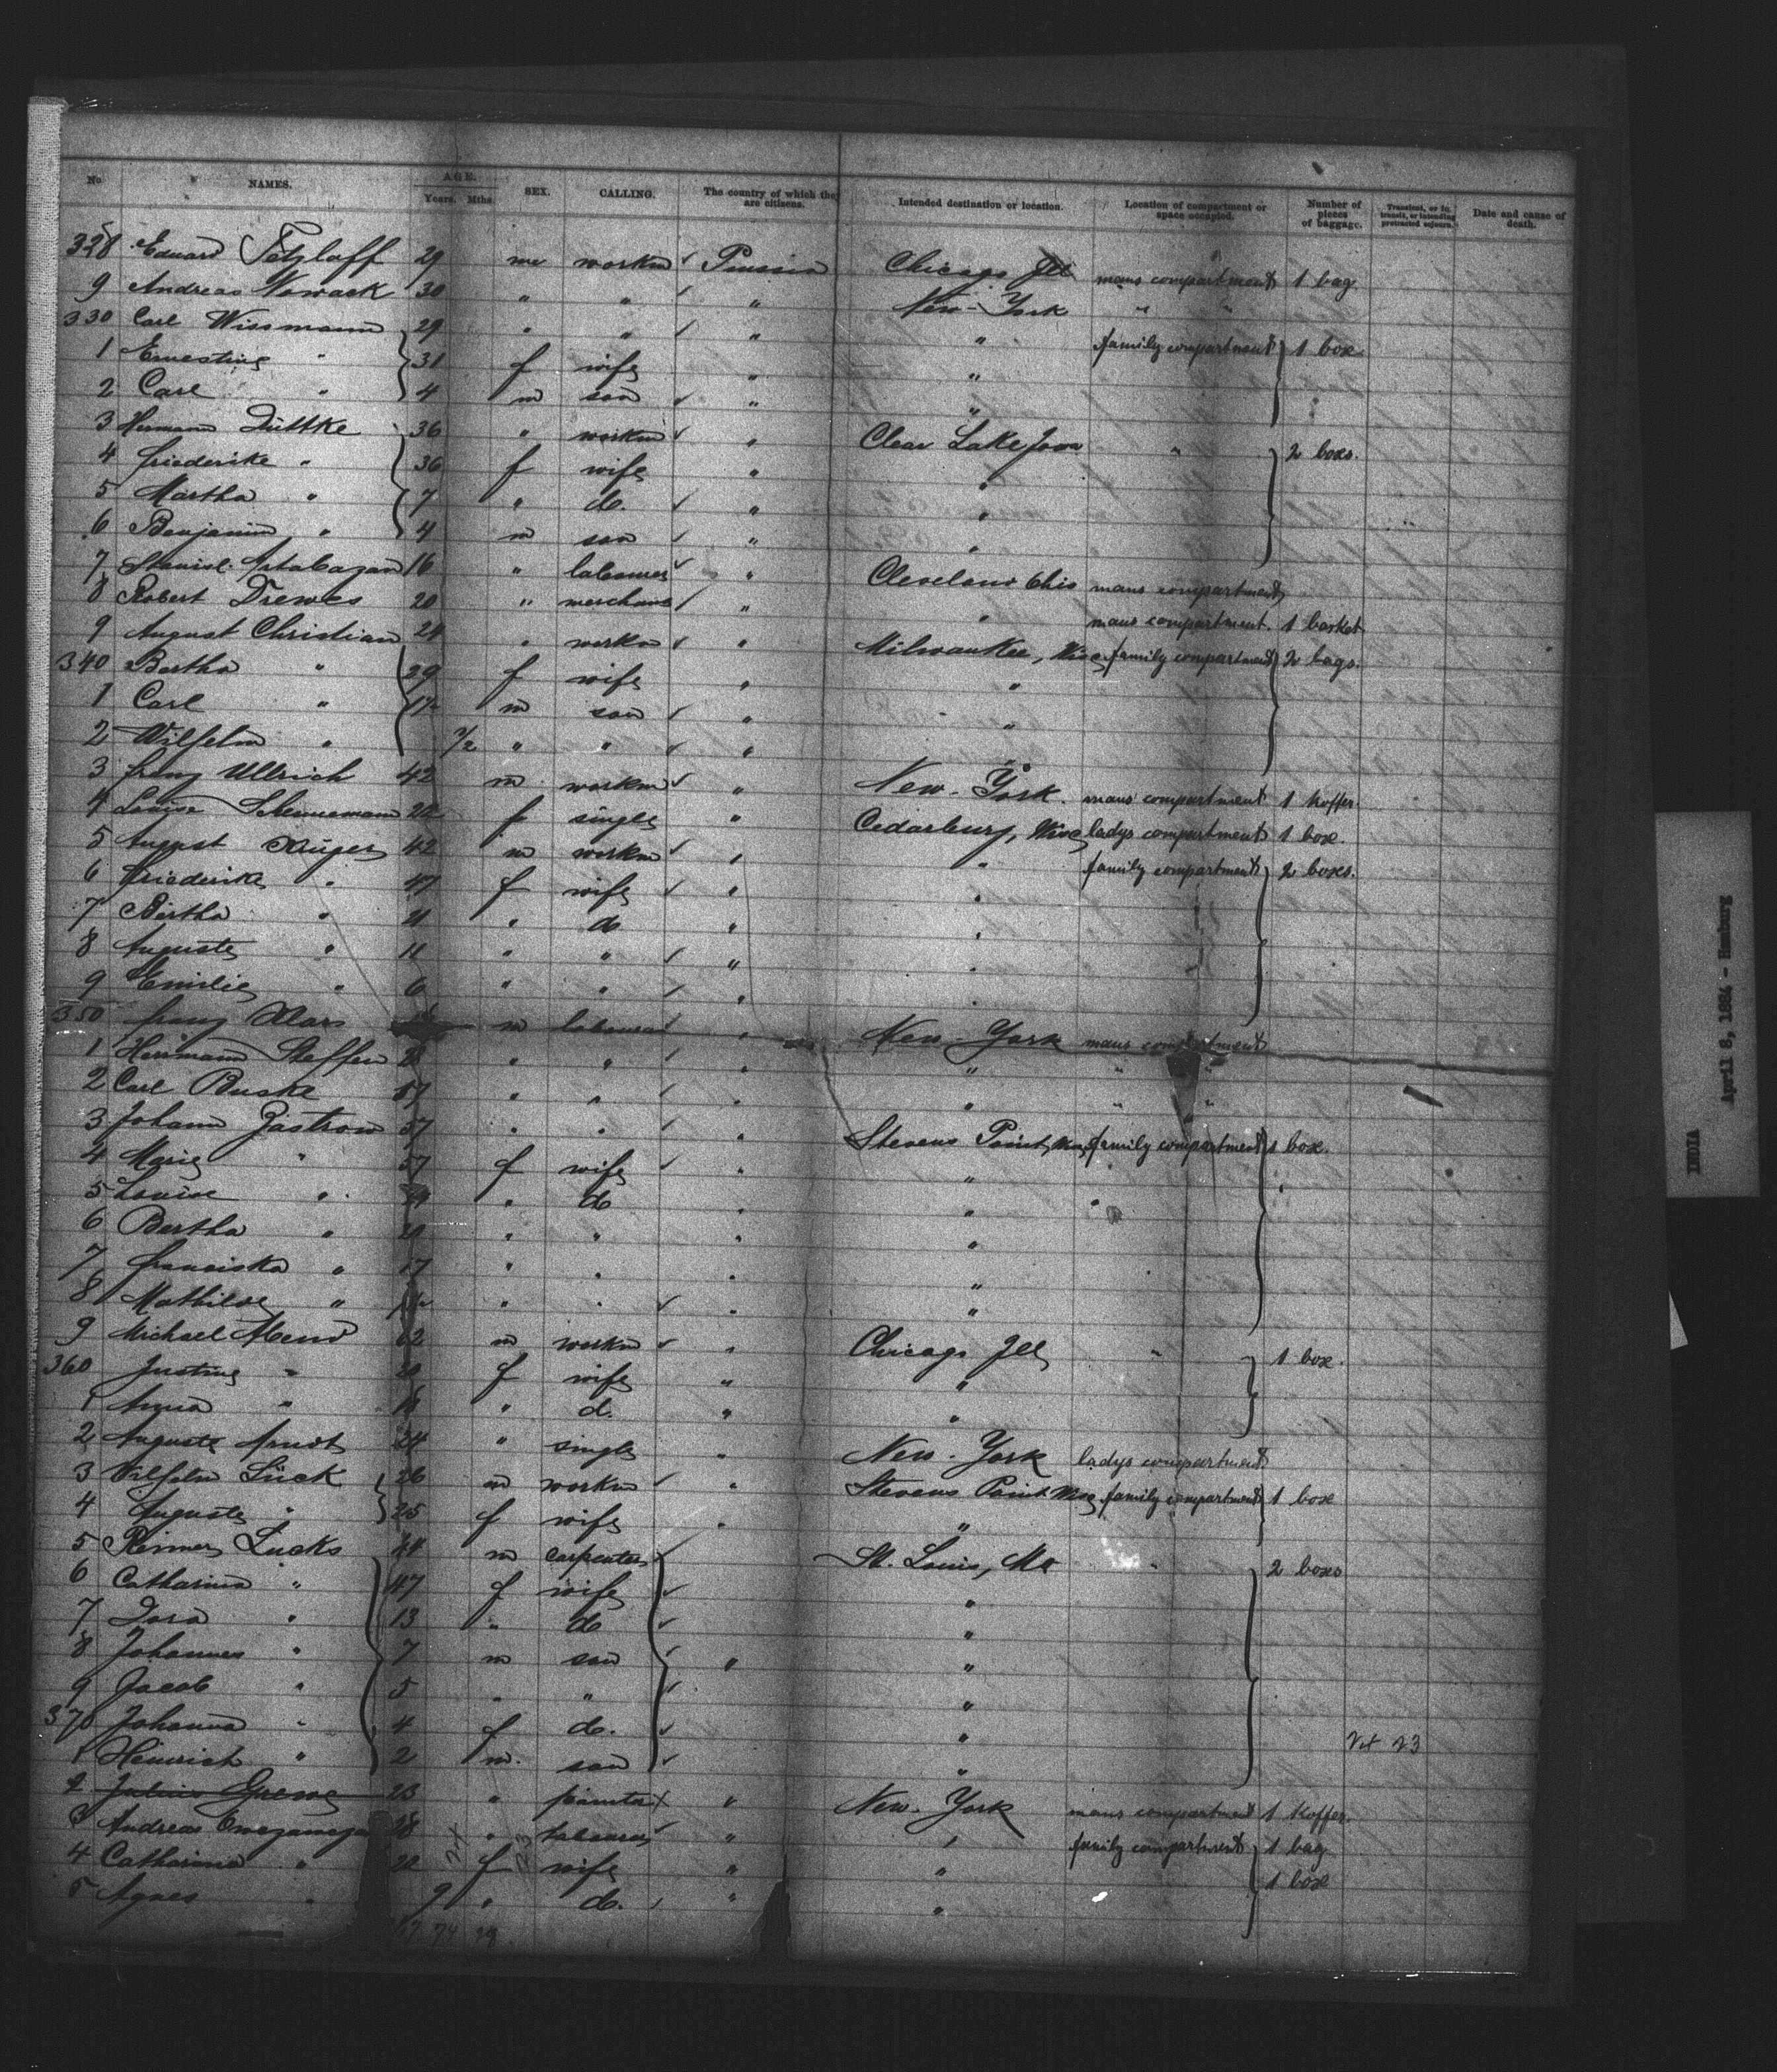 No. NAMES. AGE. Years. Mths. SEX. CALLING. The country of which they are citizens. Intended destination or location. Location of compartment or space occupied. Number of pieces of baggage. Transient, or in transit, or intending protracted sojourn. Date and cause of death.
328 Eduard Tetzlaff 29 m workm Prussia Chicago Ill mans compartment 1 bag.
9 Andreas Nowack 30 " " " New-York " "
330 Carl Wissmann 29 " " " " family compartment 1 box
1 Ernestine " 31 f wife " "
2 Carl " 4 m son " "
3 Hermann Düttke 36 " workm " Clear Lake Iowa " 2 boxs.
4 Friederike " 36 f wife " "
5 Martha " 7 " do. " "
6 Benjamin " 4 m son " "
7 Stanisl. 16 " labourer " Cleveland Ohio mans compartment
8 Robert Drewes 20 " merchant " " mans compartment. 1 basket
9 August Christian 24 " workm " Milwaukee, Wisc family compartment 2 bags.
340 Bertha " 29 f wife " "
1 Carl " m son " "
2 Wilhelm " " " " "
3 Franz Ullrich 42 m workm " New-York. mans compartment 1 Koffer.
4 Louise f single " Cedarburg, Wisc ladys compartment 1 box.
5 August Krüger 42 m workm " " family compartment 2 boxs.
6 Friederike " 47 f wife " "
7 Bertha " " do " "
8 Auguste " 11 " " " "
9 Emilie " 6 " " " "
350 Franz m labourer " New-York mans compartment
1 Herrmann Steffen 28 " " " " " "
2 Carl Buske " " " " " "
3 Johann Zastrow 57 " " " Stevens Point, Wisc family compartment 1 box.
4 Marie " 57 f wife " "
5 Louise " " do " " "
6 Bertha " 20 " " " "
7 Franciska " 17 " " " "
8 Mathilde " " " " "
9 Michael 62 m workm " Chicago Ill " 1 box.
360 Justine " f wife " "
1 Anna " " d. " "
2 Auguste Arndt 24 " single " New-York ladys compartment
3 Wilhelm Lück 26 m workm " Stevens Point Wisc family compartment 1 box
4 Auguste " 25 f wife " "
5 Reimer Lucks 44 m carpenter St. Louis, Mo " 2 boxs
6 Catharina " 47 f wife "
7 Dora " 13 " do "
8 Johannes " 7 m son " "
9 Jacob " 5 " " "
370 Johanna " 4 f do. "
1 Heinrich " 2 m. son "
2 Julius Grewe 23 " painter " New-York mans compartment 1 Koffer.
3 Andreas 28 " labourer " " family compartment 1 bag
4 Catharina " f wife " " 1 box
5 Agnes " 9 " do. " "
74
INDIA
April 8, 1884 - Hamburg